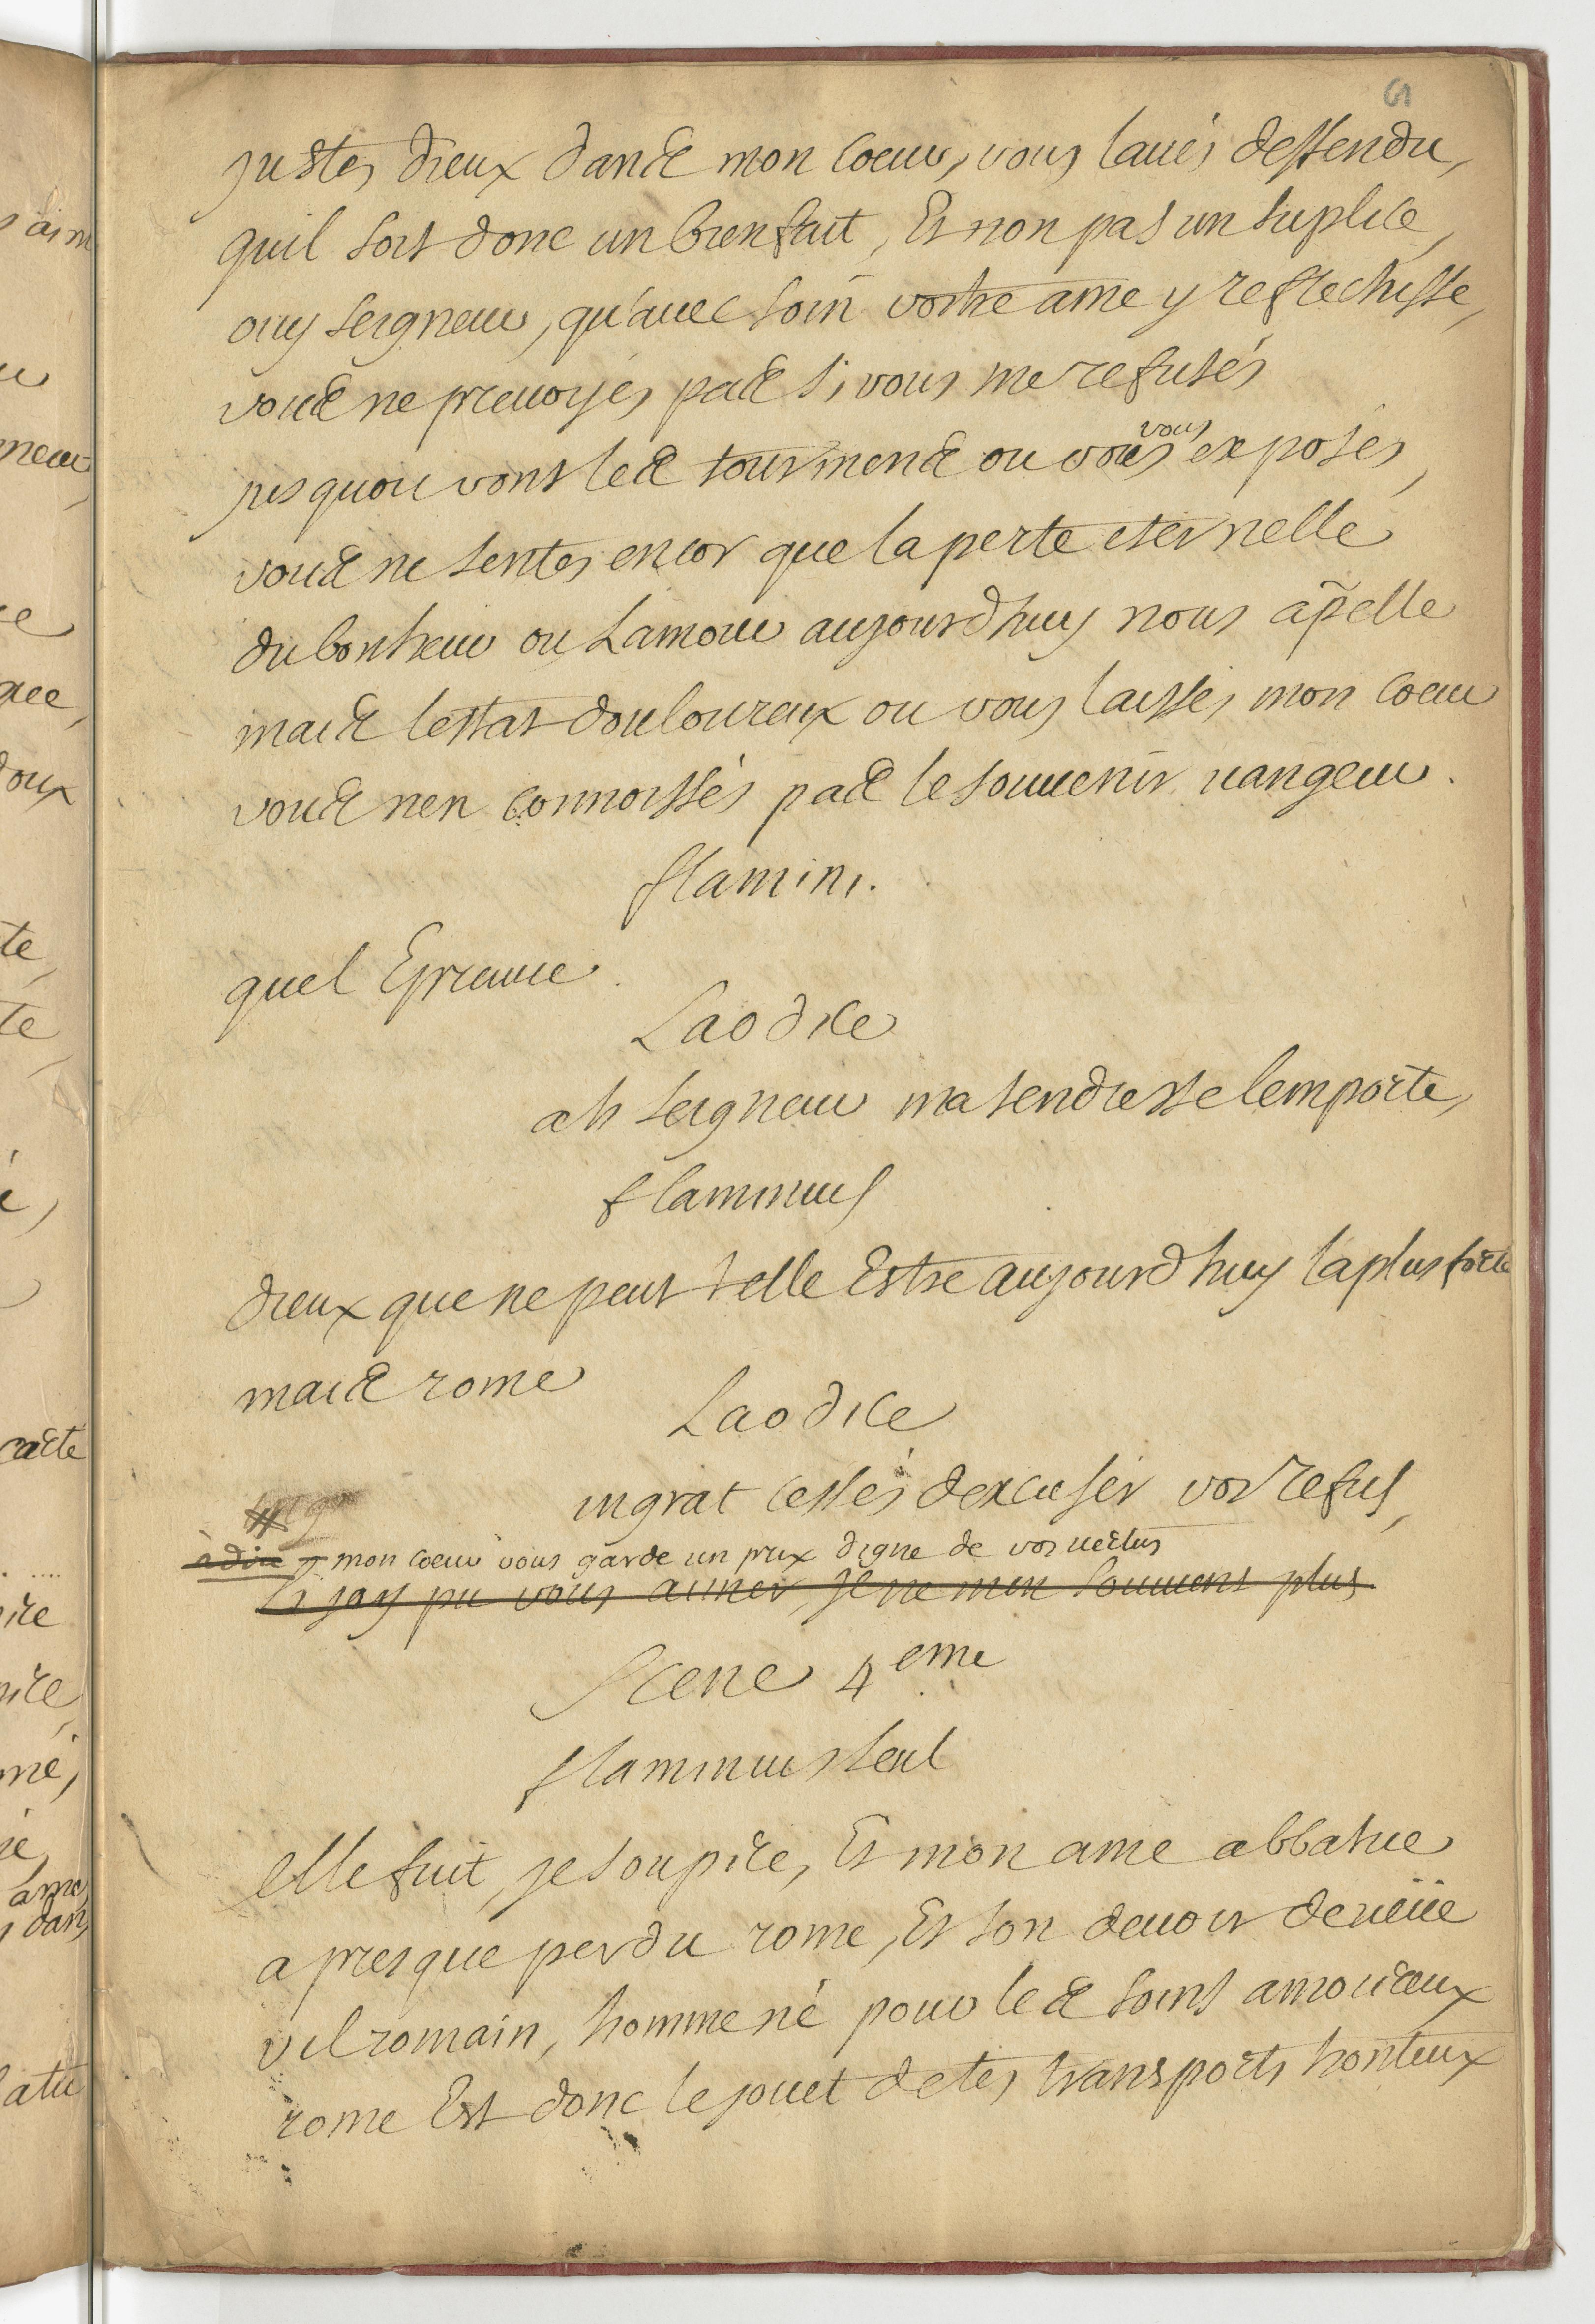 justes dieux dans mon coeur, vous laués deffendu,
quil soit donc un bienfait, Et non pas un suplice,
ouy seigneur, qu'auec soin vostre ame y reflechisse,
vous ne preuoyés pas si vous me refusés
vous
jusquou vont les tourmens ou vous exposés,
vous ne sentes encor que la perte eternelle
du bonheur ou Lamour aujourdhuy nous apelle
mais lestat douloureux ou vous laissés mon coeur
vous nen connoissés pas le souuenir uangeur.
flamini.
quel Epreuue.
Laodice
ah seigneur ma tendresse lemporte,
flaminius
dieux que ne peut telle Estre aujourdhuy la plus forte
mais rome
Laodice
ingrat cessés dexcuser vos refus,
adieu mon coeur vous garde un prix digne de vos uertus
si jay pu vous aimer, je ne men souuiens plus
Scene 4eme
flaminius seul
elle fuit, je soupire, Et mon ame abbatue
a presque perdu rome, Et son deuoir de ueüe
vil romain, homme né pour les soins amoureux
rome Est donc le jouet de tes transports honteux